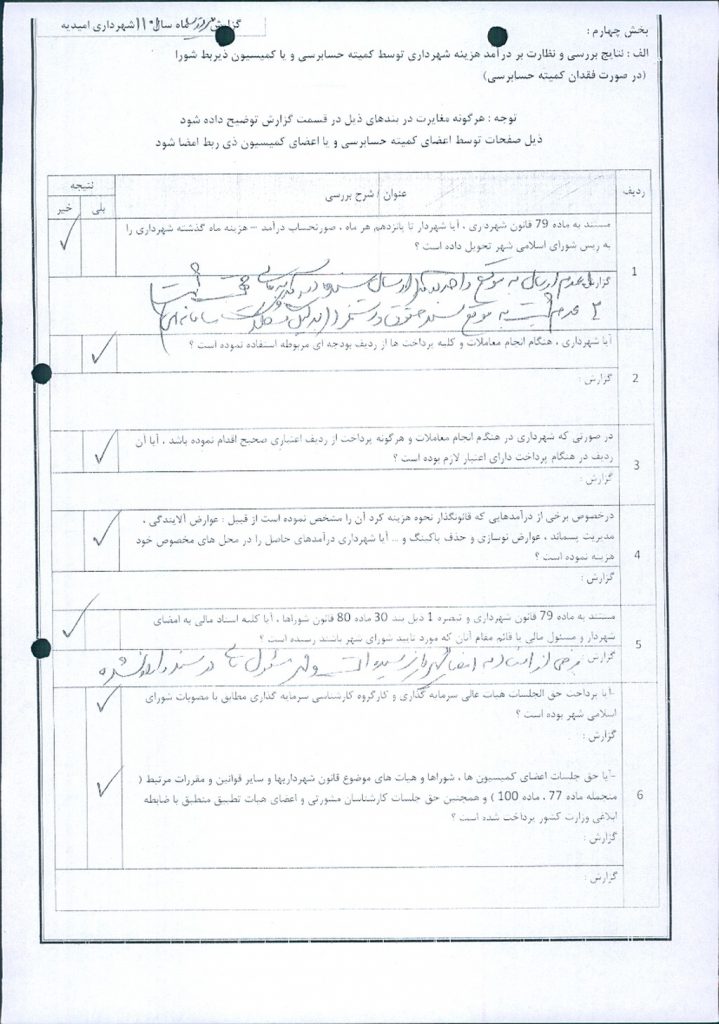 گزارش ماه سال شهرداری امیدیه
بخش چهارم :
الف : نتایج بررسی و نظارت بر درآمد هزینه شهرداری توسط کمیته حسابرسی و یا کمیسیون ذیربط شورا
(در صورت فقدان کمیته حسابرسی)
توجه : هرگونه مغایرت در بندهای ذیل در قسمت گزارش توضیح داده شود
ذیل صفحات توسط اعضای کمیته حسابرسی و یا اعضای کمیسیون ذی ربط امضا شود
ردیف
عنوان / شرح بررسی
نتیجه
بلی
خیر
1
مستند به ماده 79 قانون شهرداری ، آیا شهردار تا پانزدهم هر ماه ، صورتحساب درآمد – هزینه ماه گذشته شهرداری را
به ریس شورای اسلامی شهر تحویل داده است ؟
گزارش عدم ارسال به موقع ارسال
عدم به موقع سند حقوق
2
آیا شهرداری ، هنگام انجام معاملات و کلیه پرداخت ها از ردیف بودجه ای مربوطه استفاده نموده است ؟
گزارش :
3
در صورتی که شهرداری در هنگام انجام معاملات و هرگونه پرداخت از ردیف اعتباری صحیح اقدام نموده باشد ، آیا آن
ردیف در هنگام پرداخت دارای اعتبار لازم بوده است ؟
گزارش :
4
درخصوص برخی از درآمدهایی که قانونگذار نحوه هزینه کرد آن را مشخص نموده است از قبیل : عوارض آلایندگی ،
مدیریت پسماند ، عوارض نوسازی و حذف پاکینگ و ... آیا شهرداری درآمدهای حاصل را در محل های مخصوص خود
هزینه نموده است ؟
گزارش :
5
مستند به ماده 79 قانون شهرداری و تبصره 1 ذیل بند 30 ماده 80 قانون شوراها ، آیا کلیه اسناد مالی به امضای
شهردار و مسئول مالی یا قائم مقام آنان که مورد تایید شورای شهر باشند رسیده است ؟
گزارش برخی از اسناد به امضا شهردار نرسیده است مسئول مالی در سند
6
-آیا پرداخت حق الجلسات هیات عالی سرمایه گذاری و کارگروه کارشناسی سرمایه گذاری مطابق با مصوبات شورای
اسلامی شهر بوده است ؟
گزارش :
-آیا حق جلسات اعضای کمیسیون ها ، شوراها و هیات های موضوع قانون شهرداریها و سایر قوانین و مقررات مرتبط (
منجمله ماده 77 ، ماده 100 ) و همچنین حق جلسات کارشناسان مشورتی و اعضای هیات تطبیق منطبق با ضابطه
ابلاغی وزارت کشور پرداخت شده است ؟
گزارش :
گزارش :